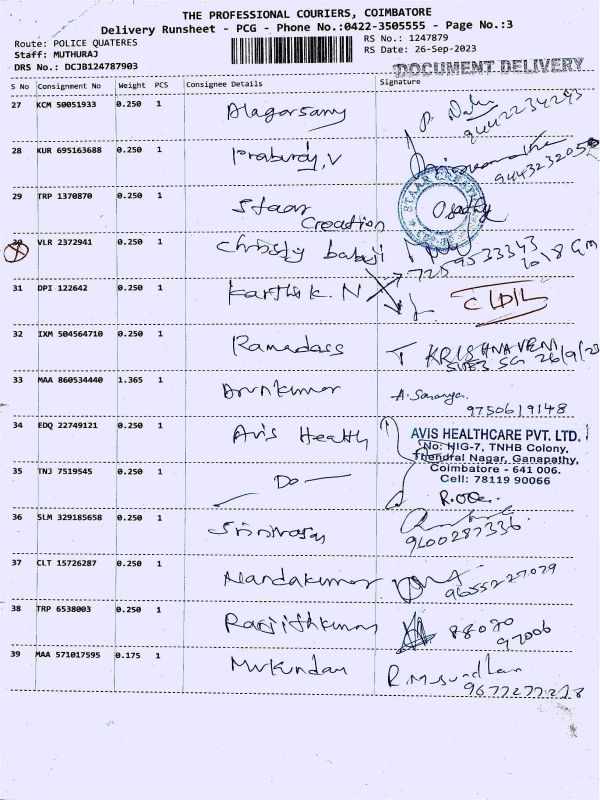 THE PROFESSIONAL COURIERS, COIMBATORE
Delivery Runsheet - PCG - Phone No.:0422-3505555 - Page No.:3
Route: POLICE QUATERES
RS No.: 1247879
Staff: MUTHURAJ
RS Date: 26-Sep-2023
DRS No.: DCJB124787903
DOCUMENT DELIVERY
S No Consignment No Weight PCS Consignee Details Signature
27 KCM 50051933 0.250 1 Alagarsamy
9442234243
28 KUR 695163688 0.250 1 V
29 TRP 1370870 0.250 1 Staar
Creation
STAAR CREATION
30 VLR 2372941 0.250 1 Christy babuji
31 DPI 122642 0.250 1 Karthik. N
32 IXM 504564710 0.250 1 Ramadass T KRISHNAVENI
26/9/23
33 MAA 860534440 1.365 1 Arunkumar A. Saranya
9750619148
34 EDQ 22749121 0.250 1 Avis Health
AVIS HEALTHCARE PVT. LTD.
No: HIG-7, TNHB Colony,
Thendral Nagar, Ganapathy,
Coimbatore - 641 006.
Cell: 78119 90066
35 TNJ 7519545 0.250 1 Do
36 SLM 329185658 0.250 1 Srinivasan
9600287336
37 CLT 15726287 0.250 1 Nandakumar 9655227029
38 TRP 6538003 0.250 1 Ranjithkumar 88070
97006
39 MAA 571017595 0.175 1 Mukundan
9677277218